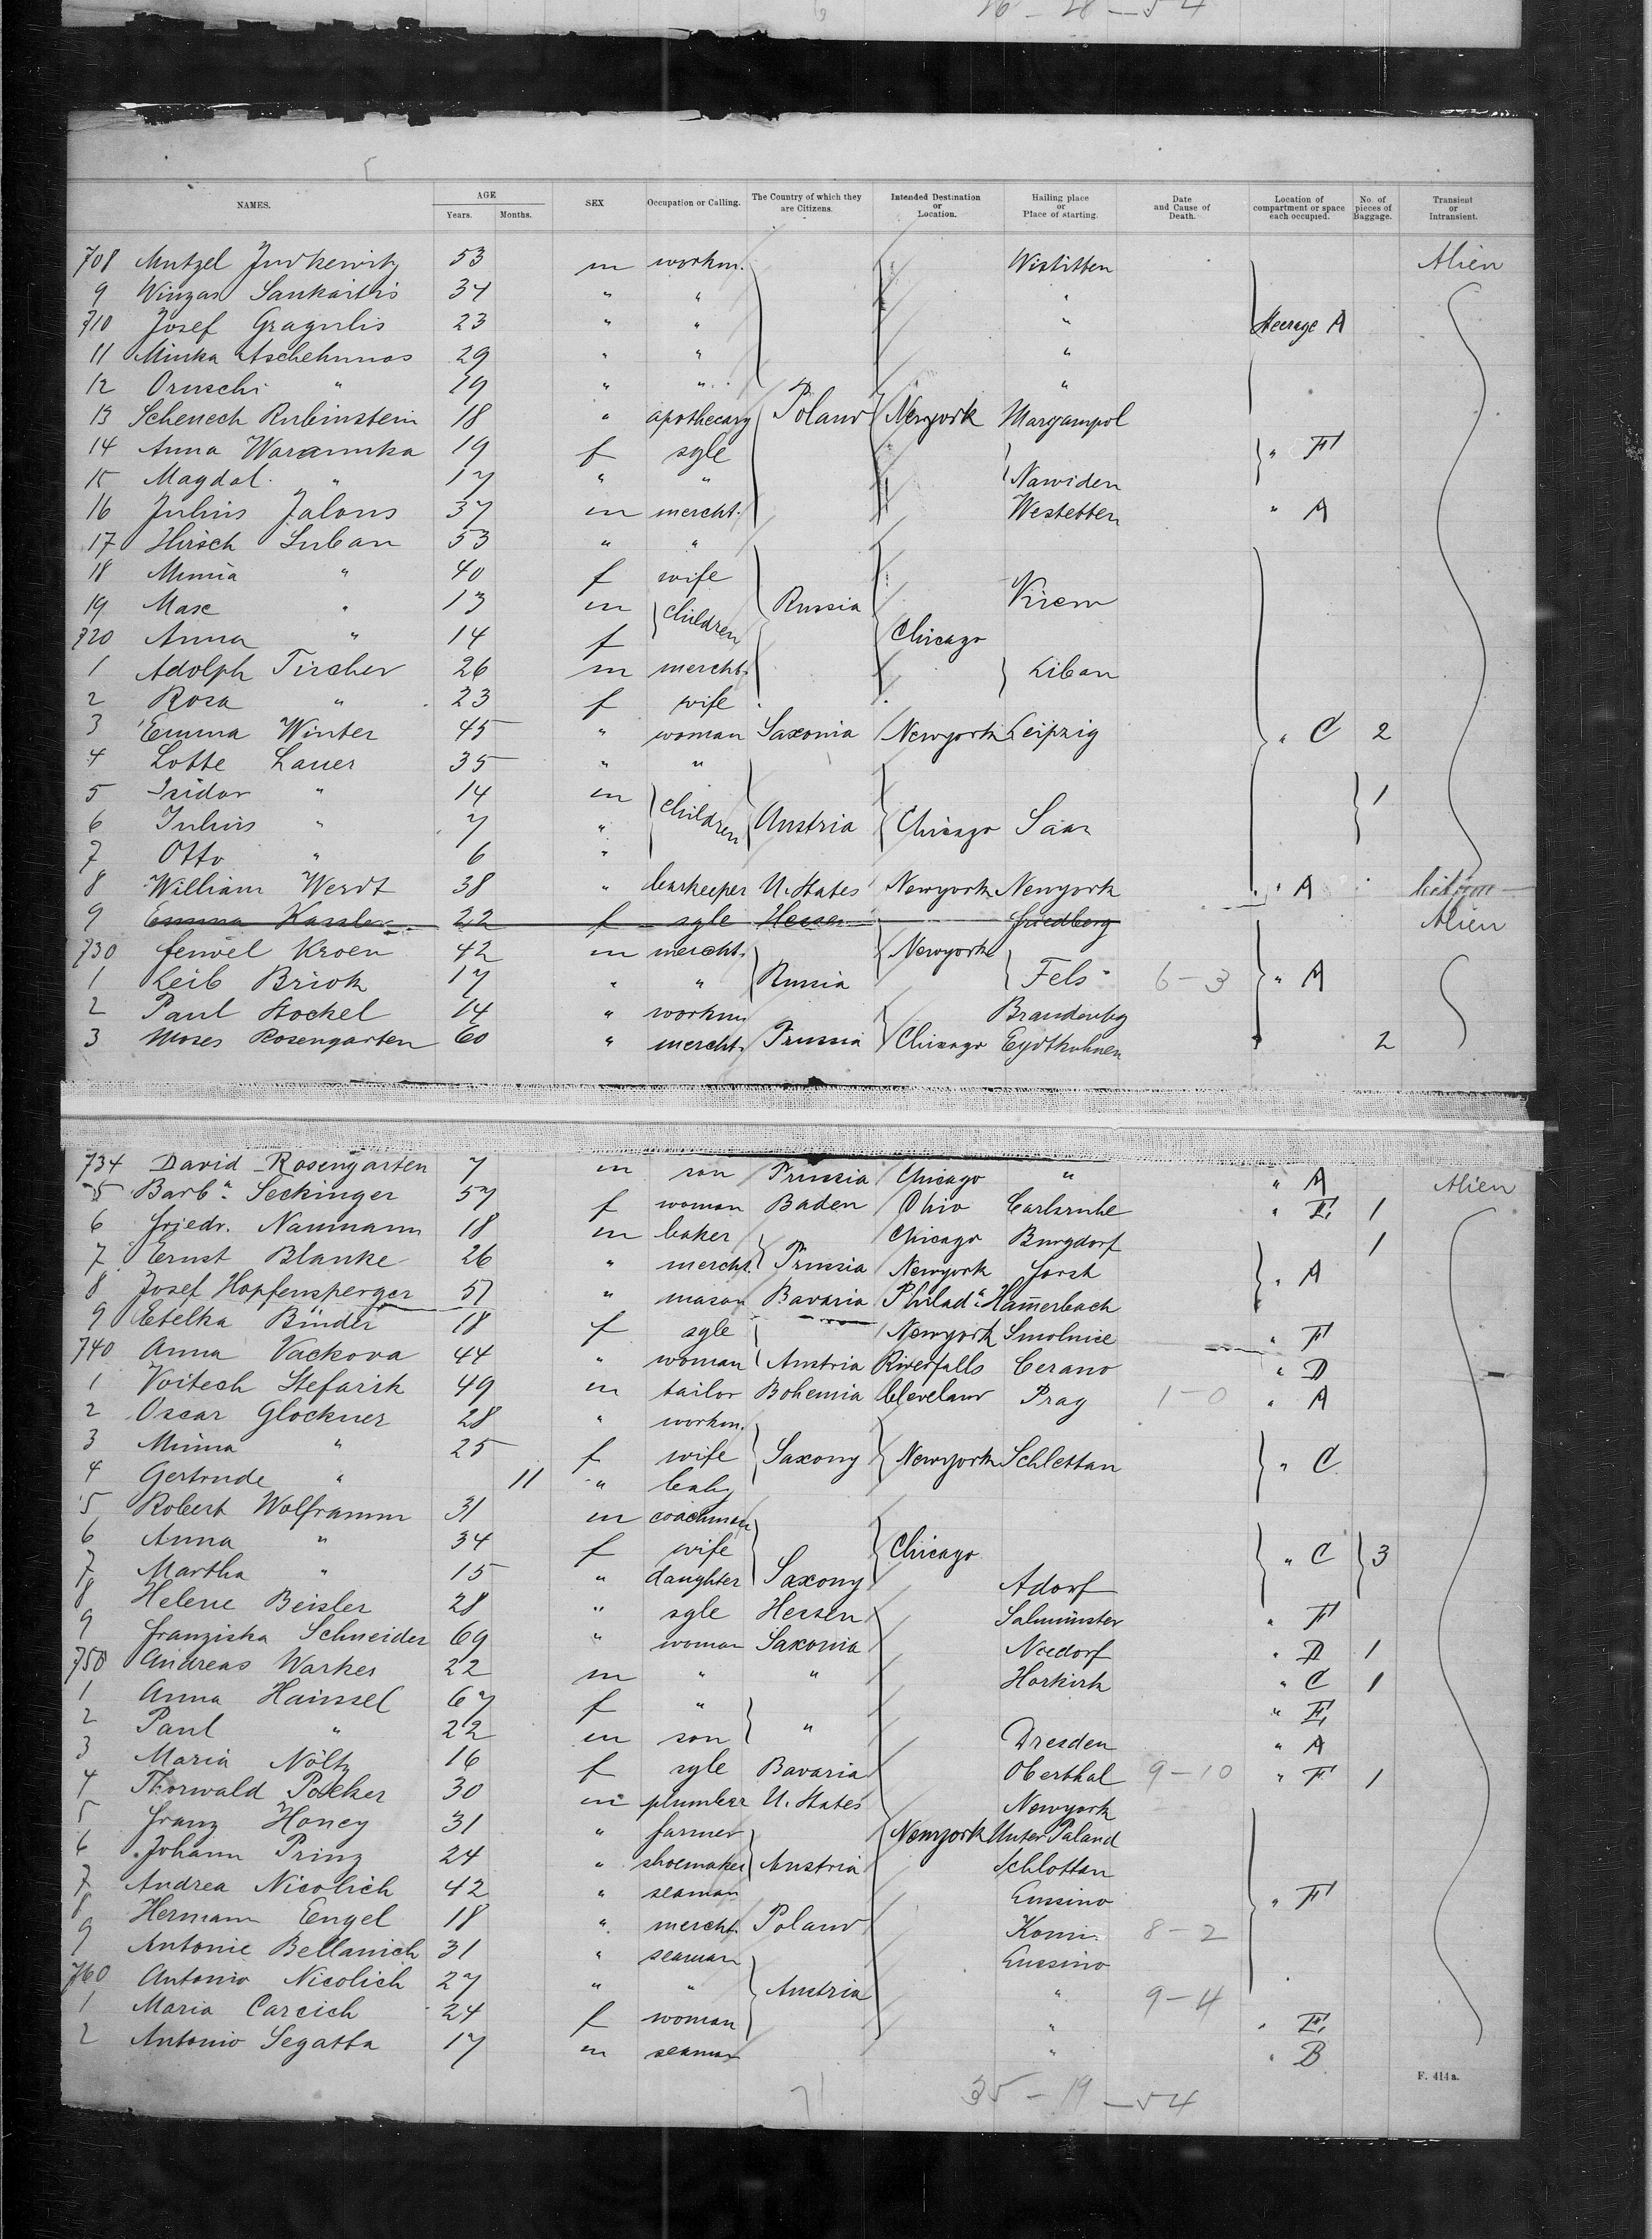 26 - 28 - 54
NAMES. AGE Years. Months. SEX Occupation or Calling. The Country of which they are Citizens. Intended Destination or Location. Hailing place or Place of starting. Date and Cause of Death. Location of compartment or space each occupied. No. of pieces of Baggage. Transient or Intransient.
708 Mutzel Judkewitz 53 m workm. Wistitten Alien
9 Winzas Sankaitis 34 " " "
710 Josef Gragulis 23 " " " Steerage A
11 Minka Aschehunas 29 " " "
12 Oruschi " 19 " " "
13 Schenech Rubinstein 18 " apothecary Poland Newyork Margampol
14 Anna Waranuka 19 f sgle " F
15 Magdal. " 17 " " Nawiden
16 Julius Jalons 37 m mercht. Westetten " A
17 Hirsch Luban 53 " "
18 Minna " 40 f wife
19 Max " 13 m children Russia
720 Anna " 14 f Chicago
1 Adolph Fischer 26 m mercht. Liban
2 Rosa " 23 f wife
3 Emma Winter 45 " woman Saxonia Newyork Leipzig " C 2
4 Lotte Lauer 35 " "
5 Isidor " 14 m 1
6 Julius " 7 " children Austria Chicago Saaz
7 Otto " 6 "
8 William Werdt 38 " barkeeper U. States Newyork Newyork " A
9 Emma Kassler 22 f sgle Hessen Friedberg Alien
730 Feiwel Kroen 42 m mercht. Newyork
1 Leib Briok 17 " " Russia Fels 6-3 " A
2 Paul Stockel 14 " workm Brandenbg
3 Moses Rosengarten 60 " mercht. Prussia Chicago Eydtkuhnen 2
734 David Rosengarten 7 m son Prussia Chicago " " A Alien
5 Barba. Seckinger 57 f woman Baden Ohio Carlsruhe " E 1
6 Friedr. Naumann 18 m baker Chicago Burgdorf 1
7 Ernst Blanke 26 " mercht. Prussia Newyork Forst " A
8 Josef Hopfensperger 57 " mason Bavaria Philada. Hamerbach
9 Etelka Binder 18 f sgle Newyork Smolnice " F
740 Anna Vackova 44 " woman Austria Riverfalls Cerano " D
1 Voitech Stefarik 49 m tailor Bohemia Cleveland Prag 1-0 " A
2 Oscar Glockner 28 " workm.
3 Minna " 25 f wife Saxony Newyork Schlettau " C
4 Gertrude " 11 " baby
5 Robert Wolframm 31 m coachman
6 Anna " 34 f wife Chicago " C 3
7 Martha " 15 " daughter Saxony Adorf
8 Helene Beisler 28 " sgle Hessen Salmünster " F
9 Franziska Schneider 69 " woman Saxonia Needorf " D 1
750 Andreas Warkes 22 m " " Horkirk " C 1
1 Anna Hainssel 67 f " " E
2 Paul " 22 m son " Dresden " A
3 Maria Nöltz 16 f sgle Bavaria Oberthal 9-10 " F 1
4 Thorwald Pocker 30 m plumber U. States Newyork
5 Franz Honey 31 " farmer Newyork Unter Paland
6 Johann Prinz 24 " shoemaker Austria Schlottau
7 Andrea Nicolich 42 " seaman Lussino " F
8 Hermann Engel 18 " mercht. Poland Komi 8-2
9 Antonie Bellanich 31 " seaman Lussino
760 Antonio Nicolich 27 " " Austria " 9-4
1 Maria Carcich 24 f woman " " E
2 Antonio Segatta 17 m seaman " " B
F. 414a.
35 - 19 - 54